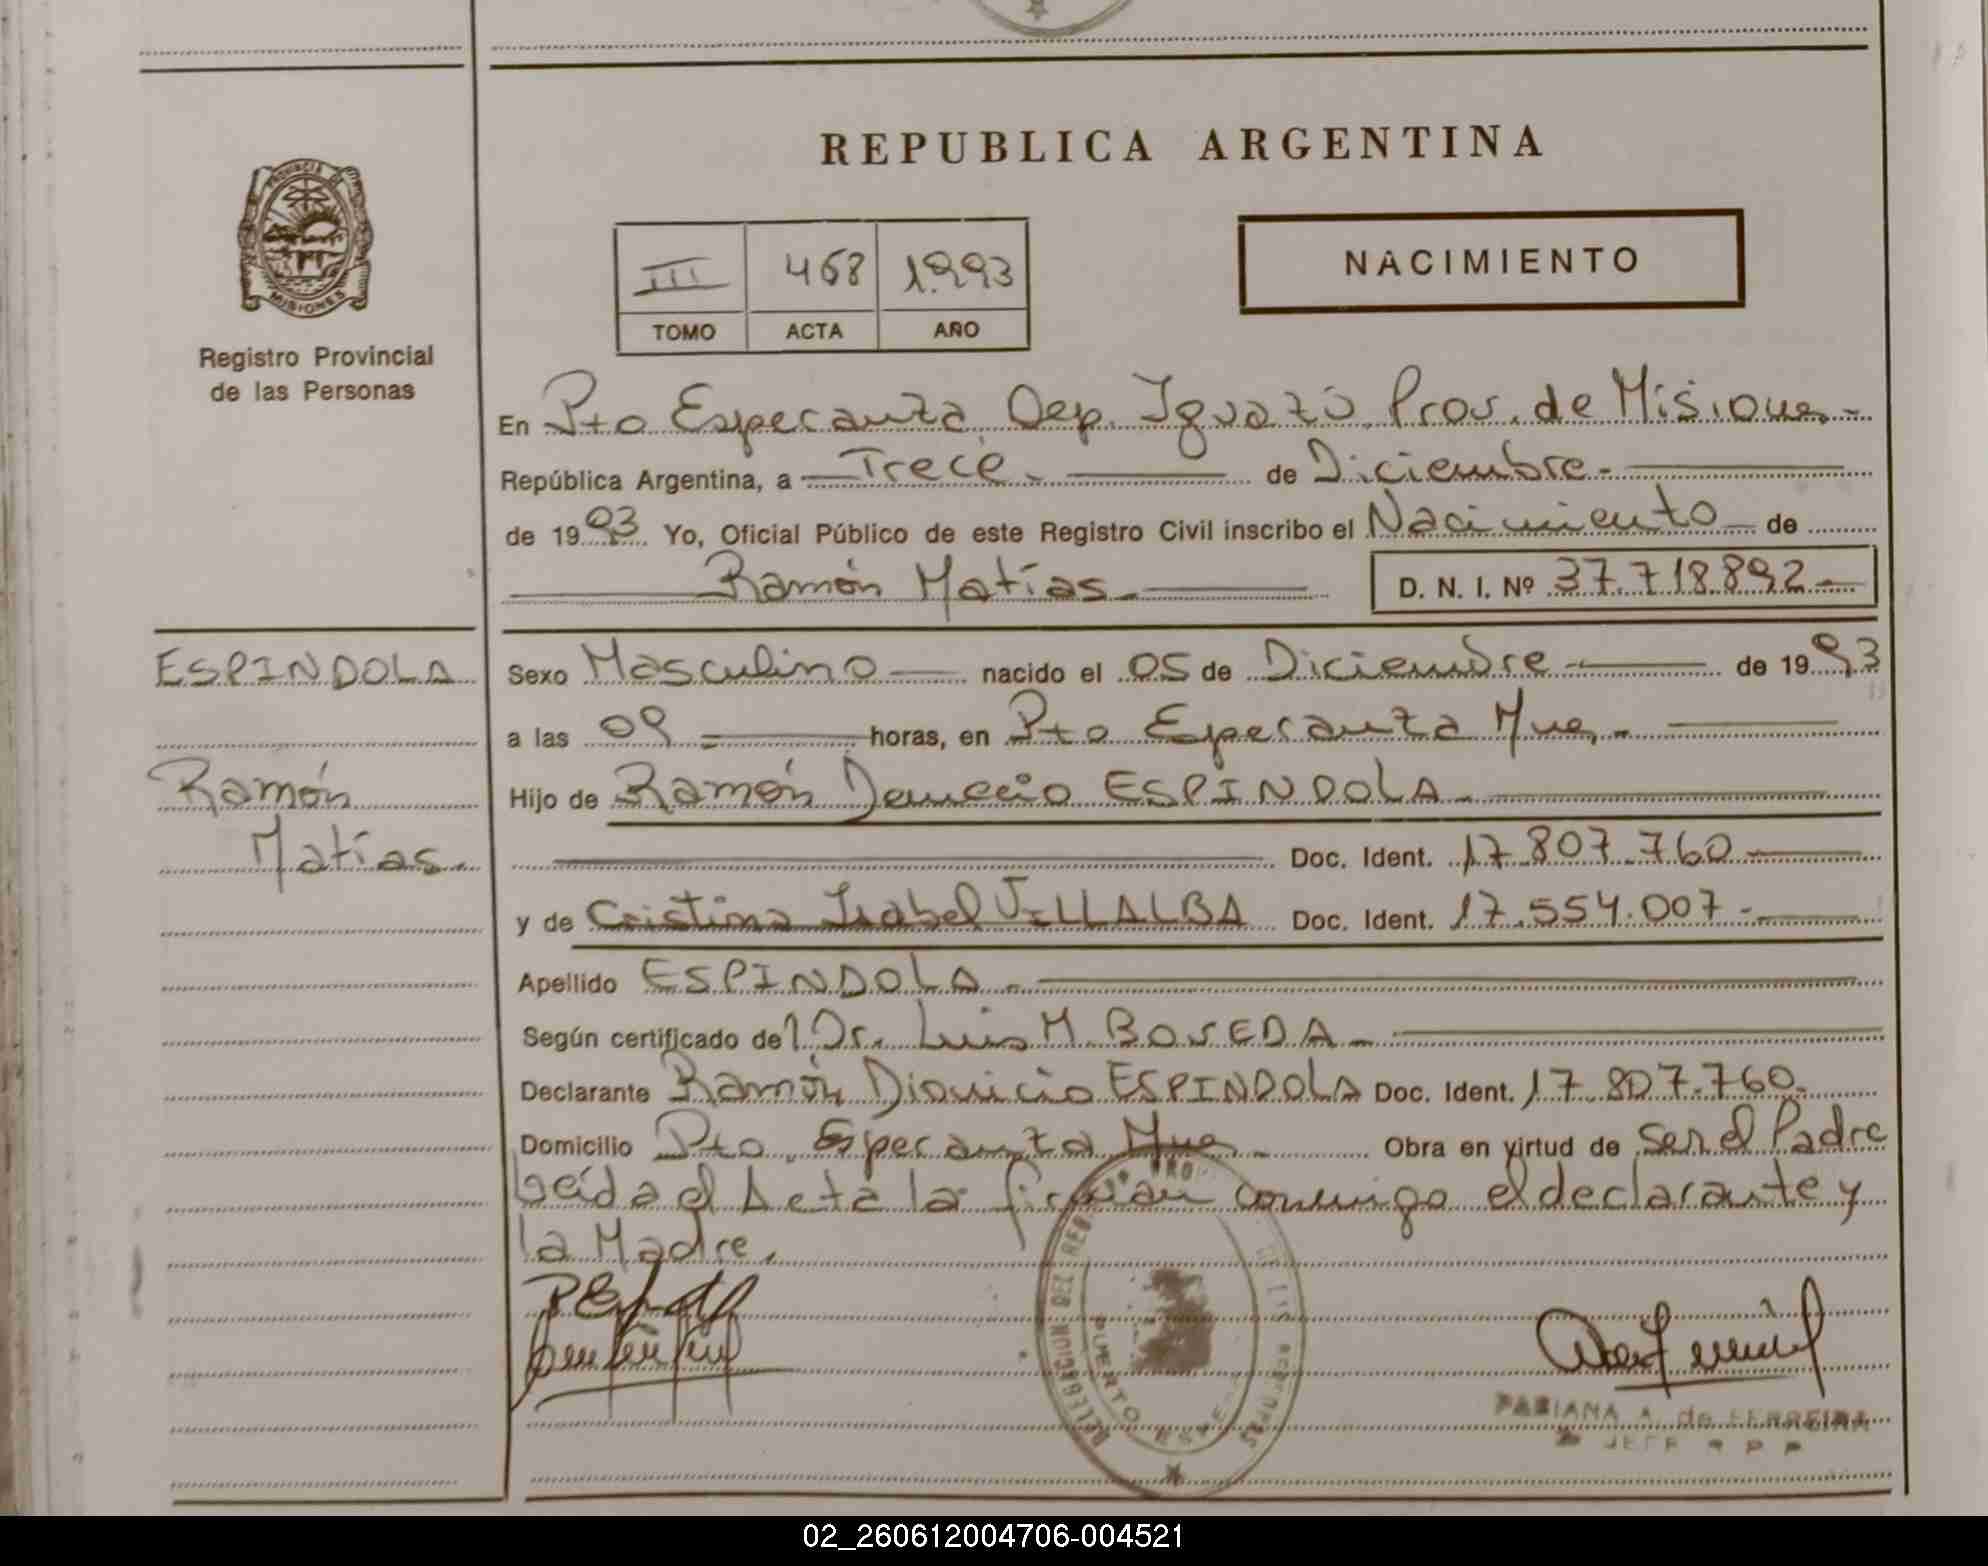 REPUBLICA ARGENTINA
PROVINCIA DE
MISIONES
Registro Provincial
de las Personas
III 468 1.993
TOMO ACTA AÑO
NACIMIENTO
En Pto Esperanza Dep. Iguazú Prov. de Misiones-
República Argentina, a Trece. de Diciembre.-
de 1993. Yo, Oficial Público de este Registro Civil inscribo el Nacimiento de
Ramón Matías.- D. N. I. Nº 37.718.892.-
ESPINDOLA
Ramón
Matías.
Sexo Masculino nacido el 05 de Diciembre de 1993
a las 09 = horas, en Pto Esperanza Mnes.-
Hijo de Ramón ESPINDOLA.-
Doc. Ident. 17.807.760
y de Cristina Isabel VILLALBA Doc. Ident. 17.554.007.-
Apellido ESPINDOLA.-
Según certificado del Dr. Luis M. BOVEDA.-
Declarante Ramón Dionicio ESPINDOLA Doc. Ident. 17.807.760.
Domicilio Pto. Esperanza Mnes.- Obra en virtud de Ser el Padre
Leída el Acta la firman conmigo el declarante y
la Madre.
DELEGACION DEL REG
PUERTO
FABIANA A. de FERREIRA
JEFE
02_260612004706-004521